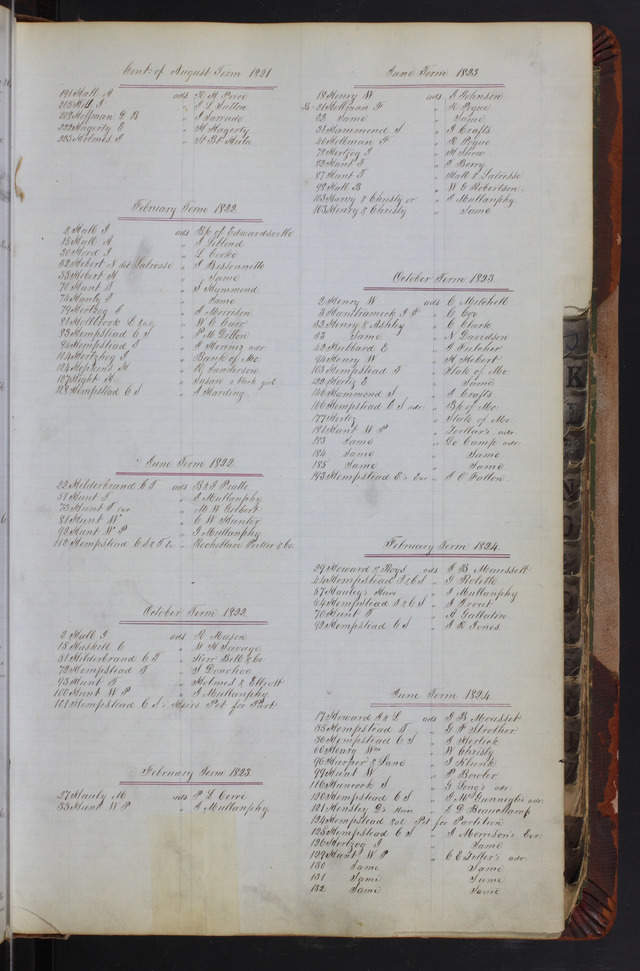 Cont. of August Term 1821
191 Hall A ads R H Price
205 Hill J " J L Sutton
208 Hoffman G B " J Savrade
222 Hagerty E " H Hagerty
223 Holmes J "
February Term 1822
2 Hull J ads Bk of Edwardsville
15 Hull A " J Leblond
30 Hord J " L Cooke
52 Hebert N dit Labrosse " J Bissonnette
53 Hebert N " Same
70 Hunt T " S Hammond
74 Hanly T " Same
79 Hertzog J " A Morrison
81 Holbrook L " W C Carr
83 Hempstead C S " P M Dillon
94 Hempstead E "
114 Hertzhog J " Bank of Mo.
124 Hopkins H " R Sanderson
127 Hight H " Susan a black girl
128 Hempstead C S " J Harding
June Term 1822
22 Hilderbrand C T ads B & J Pratte
51 Hunt T " J Mullanphy
73 Hunt T Exr " M W Gilbert
81 Hunt W " C W Hunter
98 Hunt Wm P " J Mullanphy
112 Hempstead C S & " Rochellare Peltier & Co
October Term 1822
2 Hull J ads R Mason
18 Haskill C " W H Savage
51 Hilderbrand C T " Kerr Bell & Co
72 Hempstead T " S Donohoe
93 Hunt T " Holmes & Elliott
100 Hunt W P " J Mullanphy
101 Hempstead C S & Heirs Pet for Part
February Term 1823
27 Hauly M ads P L Cerre
33 Hunt W P " J Mullanphy
June Term 1823
18 Henry W ads J Johnson
21 Hollman F " R Pogue
23 Same " Same
31 Hammond S " J Crafts
40 Hollman F " R Pogue
72 Hertzog J " H
82 Hunt T " T Berry
87 Hunt T " Hall & Labrosse
98 Hall B " W G Robertson
103 Henry & Christy or " J Mullanphy
103 Henry & Christy " Same
October Term 1823.
2 Henry W ads C Mitchell
3 Hamtramck J F " C Coy
33 Henry & Ashley " C Clark
35 Same " N Davidson
42 Hubbard E " A Fulcher
94 Henry W " H Hebert
103 Hempstead T " State of Mo.
122 Hertz E " Same
146 Hammond S " J Crafts
166 Hempstead C S adr " Bk of Mo
177 Hertz " State of Mo
181 Hunt W P " adr
183 Same " De Camp adr
184 Same " Same
185 Same " Same
193 Hempstead E's Exr " J O Fallon
February Term 1824.
39 Howard & Keys ads A B Maussett
44 Hempstead T & C S " J Rolette
57 Hauley's Heirs " J Mullanphy
64 Hempstead T & C S " J Trout
70 Hunt T " A Gallatin
92 Hempstead C S " A R Jones
June Term 1824.
17 Howard A & L ads A B Mousset
35 Hempstead T " G F Strother
36 Hempstead C S " A Hertick
60 Henry Wm " W Christy
96 Harper & Lane " J Klunk
99 Hunt W " P Bowler
116 Hancock S " G Long's adr
120 Hempstead C S " J McGunnegle adr
101 Hensley G's Heirs " L D Beauchamp
124 Hempstead et al Pet for Partition
125 Hempstead C S " J Morrison's Exr
126 Hertzog J " Same
129 Hunt W P " C E Zeller's adr
130 Same " Same
131 Same " Same
132 Same " Same
J
K
L
M
N
O